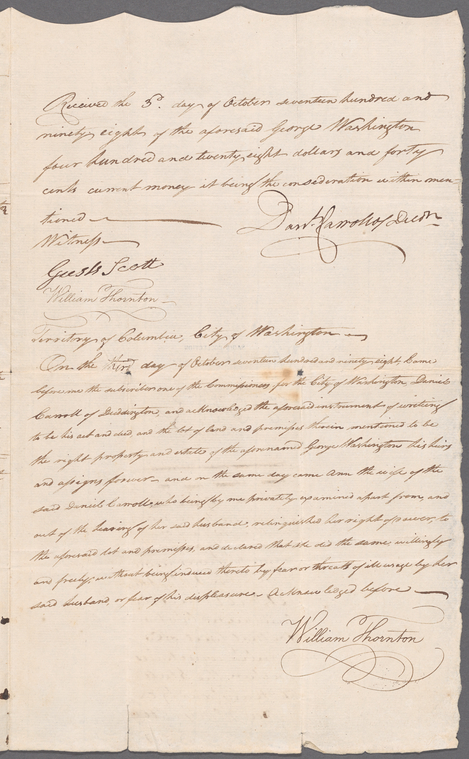 Received the 3d. day of October seventeen hundred and
ninety eight of the aforesaid George Washington
four hundred and twenty eight dollars and forty
cents current money it being the consideration within men-
tioned
Witness
Danl. Carroll of Dudn
Scott
William Thornton
Territory of Columbia, City of Washington
On the third day of October seventeen hundred and ninety eight, Came
before me the subscriber one of the Commissioners for the City of Washington Daniel
Carroll of Duddington, and acknowledged the aforesaid instrument of writing
to be his act and deed, and the lot of land and premises therein mentioned to be
the right property and estate of the aforenamed George Washington his heirs
and assigns forever and on the same day came Ann the wife of the
said Daniel Carroll, who being by me privately examined apart from, and
out of the hearing of her said husband, relinquished her right of dower, to
the aforesaid lot and premises, and declared that she did the same willingly
and freely, without being thereto by fear or threats of ill usage by her
said husband, or fear of his displeasure. Acknowledged before
William Thornton